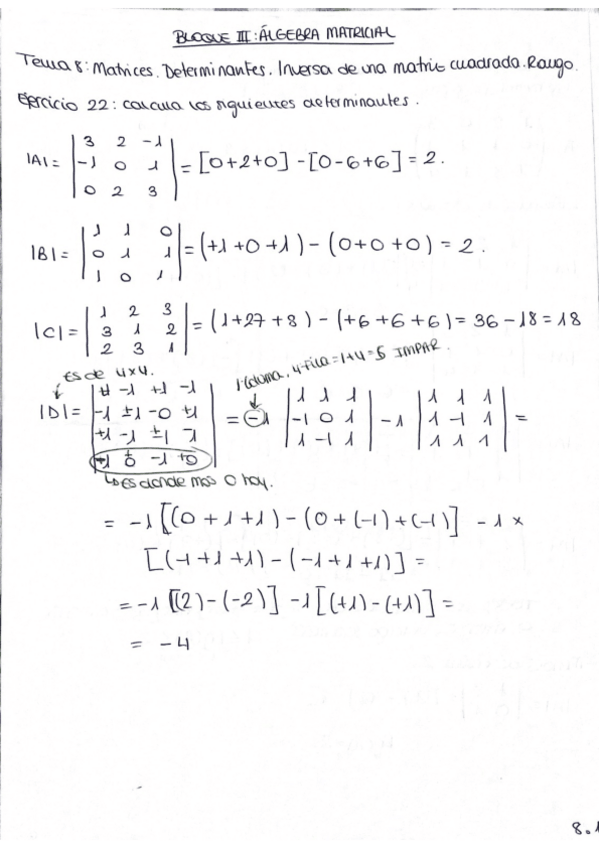 BLOQUE III: ÁLGEBRA MATRICIAL
Tema 8: Matrices. Determinantes. Inversa de una matriz cuadrada. Rango.
Ejercicio 22: calcula los siguientes determinantes.
|A| = | 3 2 -1 |
| -1 0 1 | = [0+2+0] - [0-6+6] = 2.
| 0 2 3 |
|B| = | 1 1 0 |
| 0 1 1 | = (+1+0+1) - (0+0+0) = 2.
| 1 0 1 |
|C| = | 1 2 3 |
| 3 1 2 | = (1+27+8) - (+6+6+6) = 36-18 = 18
| 2 3 1 |
Es de 4x4.
1 columna, 4 fila = 1+4 = 5 IMPAR.
|D| =
= -1 | 1 1 1 | - 1 | 1 1 1 | =
| -1 0 1 | | 1 -1 1 |
| 1 -1 1 | | 1 1 1 |
↳ Es donde mas 0 hay.
= -1 [(0+1+1) - (0+(-1)+(-1)] - 1 ×
[(-1+1+1) - (-1+1+1)] =
= -1 [(2) - (-2)] - 1 [(+1) - (+1)] =
= -4